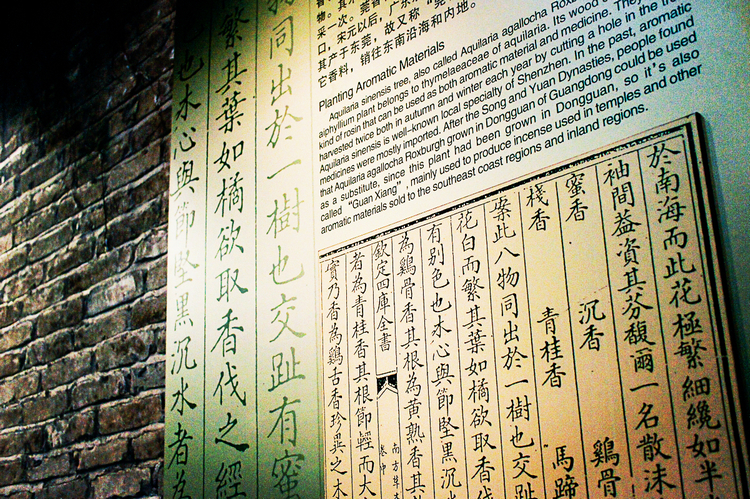 采一次。莞香
口，宋元以后，广东
其产于东莞，故又称“莞
它香料，销往东南沿海和内地。
Planting Aromatic Materials
Aquilaria sinensis tree, also called Aquilaria agallocha
aiphyllium plant belongs to thymelaeaceae of aquilaria. Its wood
kind of rosin that can be used as both aromatic material and medicine. They
harvested twice both in autumn and winter each year by cutting a hole in the
Aquilaria sinensis is well-known local specialty of Shenzhen. In the past, aromatic
medicines were mostly imported. After the Song and Yuan Dynasties, people found
that Aquilaria agallocha Roxburgh grown in Dongguan of Guangdong could be used
as a substitute, since this plant had been grown in Dongguan, so it's also
called "Guan Xiang", mainly used to produce incense used in temples and other
aromatic materials sold to the southeast coast regions and inland regions.
物同出於一樹也交趾有蜜
繁其葉如橘欲取香伐之經
也木心與節堅黑沉水者為
於南海而此花極繁細纔如半
袖間益資其芬馥爾一名散沫
蜜香 沉香 鷄骨
棧香 青桂香 馬蹄
案此八物同出於一樹也交趾
花白而繁其葉如橘欲取香
有别色也木心與節堅黑沉
為鷄骨香其根為黄熟香其
欽定四庫全書 南方草 卷中
者為青桂香其根節輕而大
實乃香為鷄舌香珍異之木